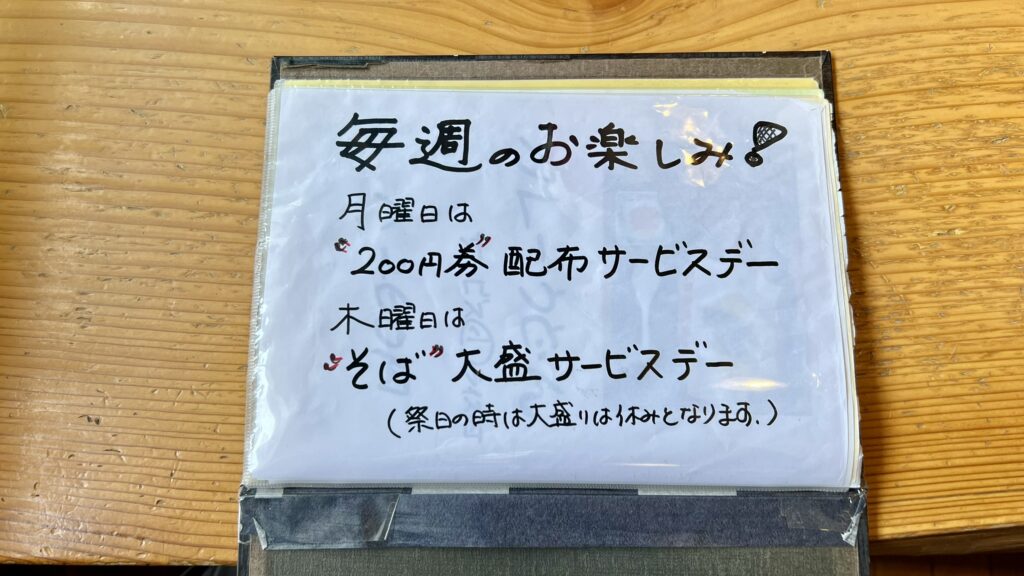 毎週のお楽しみ!
月曜日は
"200円券"配布サービスデー
木曜日は
"そば"大盛サービスデー
(祭日の時は大盛りは休みとなります.)